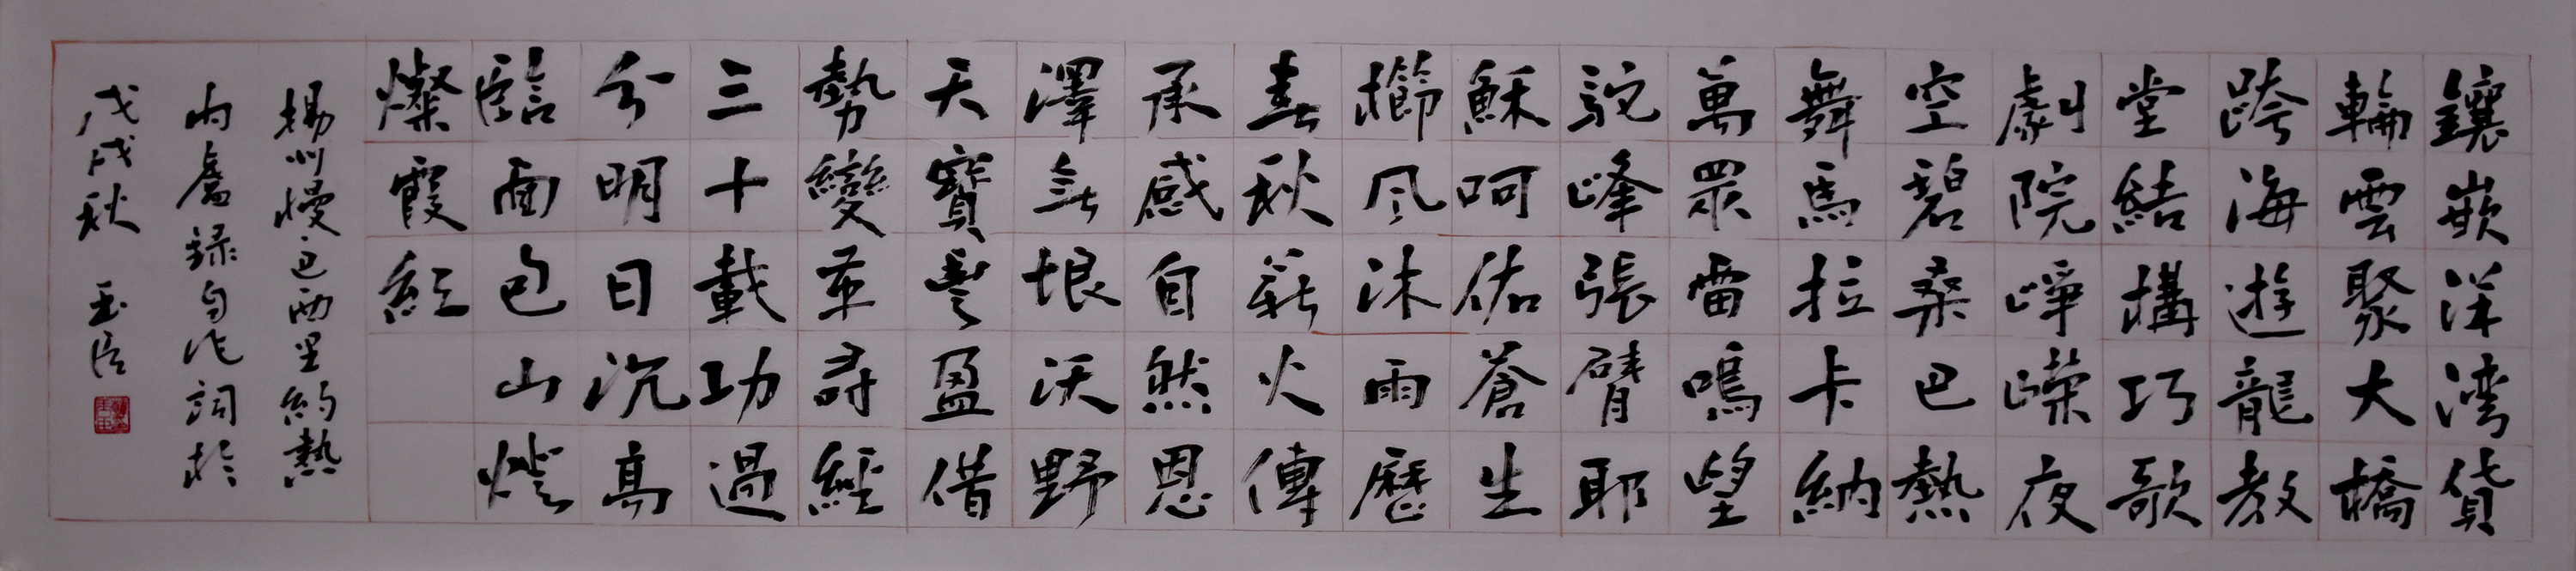 鑲嵌洋湾貨
輪雲聚大橋
跨海遊龍教
堂結構巧歌
劇院崢嶸夜
空碧桑巴熱
舞馬拉卡納
萬眾雷鳴望
駝峰張臂耶
穌呵佑蒼生
櫛風沐雨歷
春秋薪火傳
承感自然恩
澤無垠沃野
天寶豐盈借
勢變革尋經
三十載功過
分明日沉高
臨面包山燈
燦霞紅
揚州慢巴西里約熱
內盧錄自作詞於
戊戌秋 玉